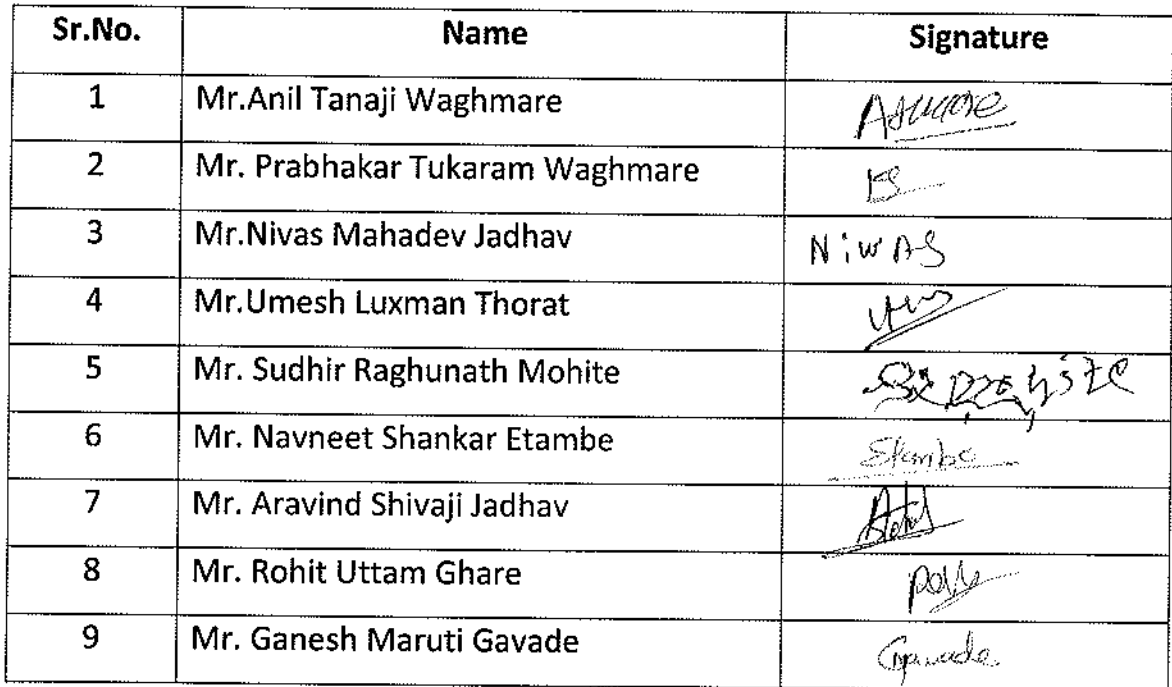 Sr.No. Name Signature
1 Mr.Anil Tanaji Waghmare
2 Mr. Prabhakar Tukaram Waghmare
3 Mr.Nivas Mahadev Jadhav NiwAS
4 Mr.Umesh Luxman Thorat
5 Mr. Sudhir Raghunath Mohite
6 Mr. Navneet Shankar Etambe Etambe
7 Mr. Aravind Shivaji Jadhav
8 Mr. Rohit Uttam Ghare
9 Mr. Ganesh Maruti Gavade Gavade